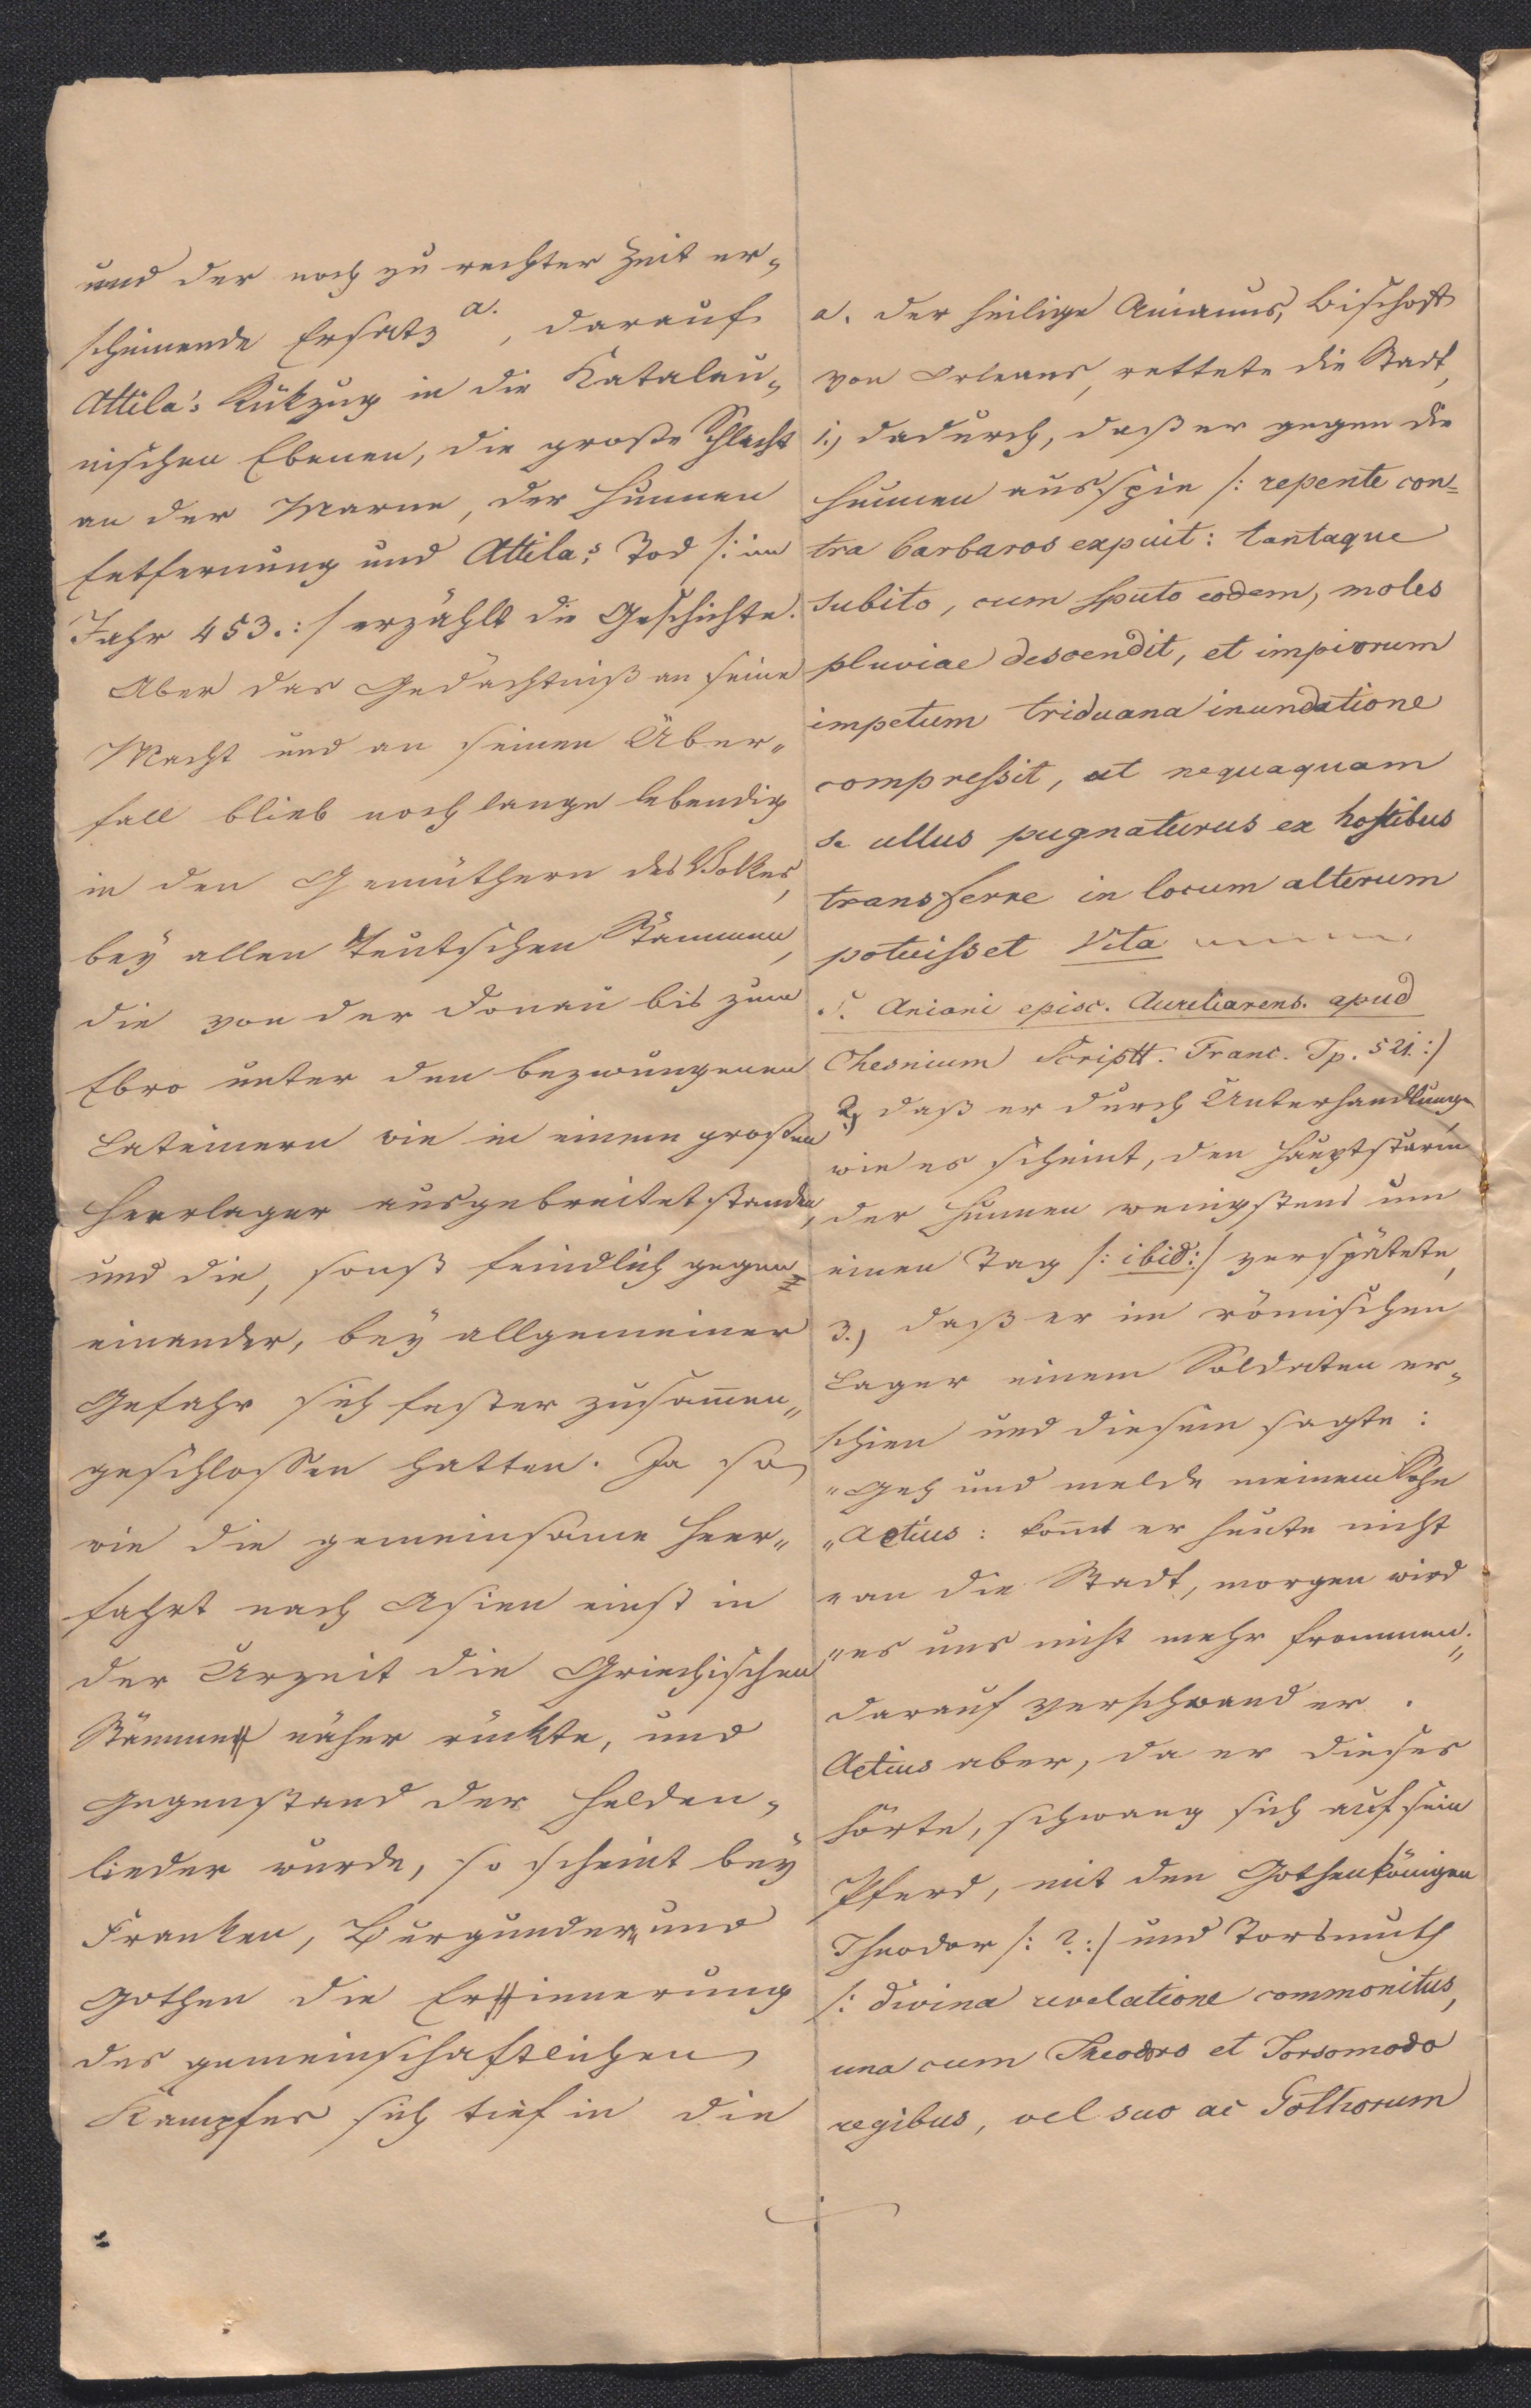 und der noch zu rechter Zeit er„
scheinende Ersatz a., darauf
Attila's Rükzug in die Katalau„
nischen Ebenen, die große Schlacht
an der Marne, der Hunnen
Entfernung und Attila's Tod /: im
Jahr 453. :/ erzählt die Geschichte.
Aber das Gedächtniß an seine
Macht und an seinen Über„
fall blieb noch lange lebendig
in den Gemüthern des Volkes,
bey allen Teutschen Stämmen,
die von der Donau bis zum
Ebro unter den bezwungenen
Lateinern wie in einem großen
Heerlager ausgebreitet standen,
und die, sonst feindlich gegen=
einander, bey allgemeiner
Gefahr sich fester zusam̄en„
geschlossen hatten. Ja so
wie die gemeinsame Heer„
fahrt nach Asien einst in
der Urzeit die Griechischen
Stämme näher rückte, und
Gegenstand der Helden„
lieder wurde, so scheint bey
Franken, Burgunder und
Gothen die Erinnerung
des gemeinschaftlichen
Kampfes sich tief in die
a. Der heilige Anianus, Bischoff
von Orleans, rettete die Stadt,
1.) dadurch, daß er gegen die
Hunnen ausspie /: repente con=
tra barbaros expuit: tantaque
subito, cum sputo eodem, moles
pluviae descendit, et impiorum
impetum triduana inundatione
compressit, ut nequaquam
se ullus pugnaturus ex hostibus
transferre in locum alterum
potuisset Vita
S. Aniani episc. Aurelianens. apud
Chesnium Scriptt. Franc. T p. 521. :/
2.) daß er durch Unterhandlungen,
wie es scheint, den Hauptsturm
der Hunnen wenigstens um
einen Tag /: ibid: :/ verspätete,
3.) daß er im römischen
Lager einem Soldaten er„
schien und diesem sagte:
„Geh und melde meinem Sohn
„Aetius: kom̄t er heute nicht
„an die Stadt, morgen wird
„es uns nicht mehr frommen.„
darauf verschwand er.
Aetius aber, da er dieses
hörte, schwang sich auf sein
Pferd, mit den Gothenkönigen
Theodor /: ? :/ und Torsmuth
/: divina revelatione commonitus,
una cum Theodoro et Torsomodo
regibus, vel suo ac Gothorum